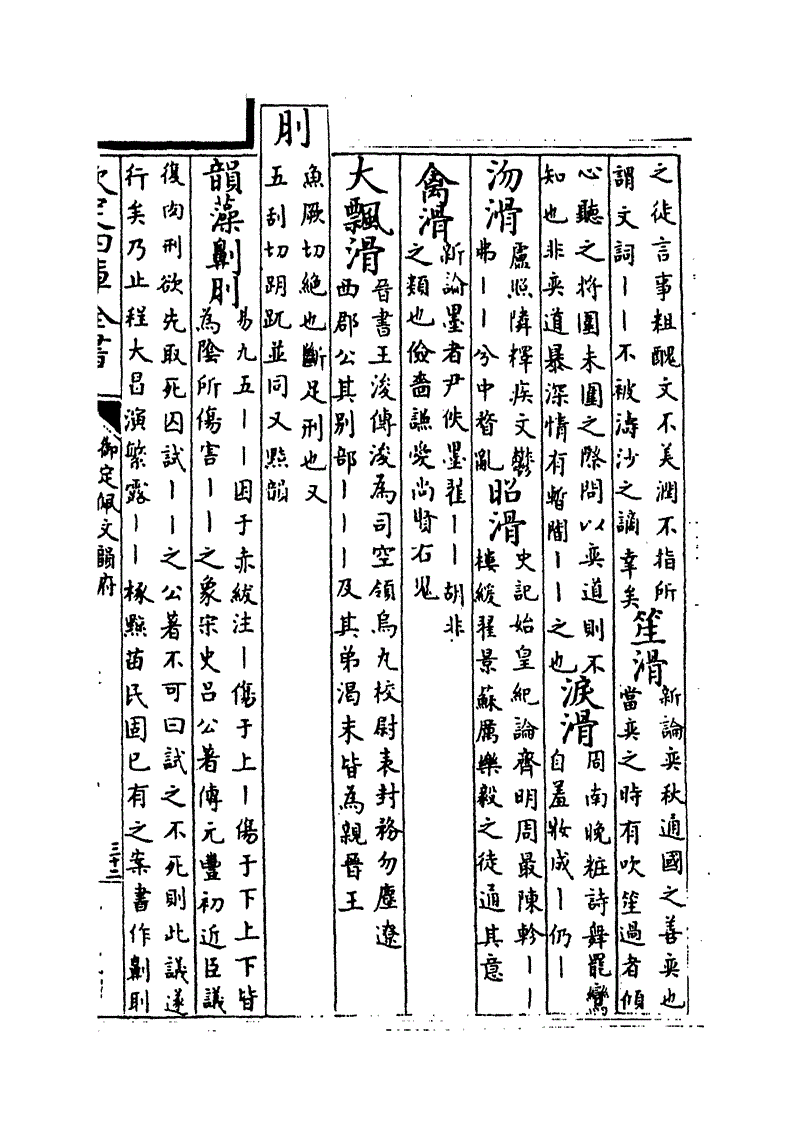 之徒言事粗醜文不美潤不指所
謂文詞丨丨不被濤沙之謫幸矣
笙滑
新論奕秋通國之善奕也
當奕之時有吹笙過者傾
心聽之將圍未圍之際問以奕道則不
知也非奕道暴深情有暫闇丨丨之也
淚滑
周南晚粧詩舞罷鸞
自羞妝成丨仍丨
沕滑
盧照隣釋疾文鬱
弗丨丨兮中瞀亂
昭滑
史記始皇紀論齊明周最陳軫丨丨
樓緩翟景蘇厲樂毅之徒通其意
禽滑
新論墨者尹佚墨翟丨丨胡非
之類也儉嗇謙愛尚賢右鬼
大飄滑
晉書王浚傳浚為司空領烏丸校尉表封務勿塵遼
西郡公其别部丨丨丨及其弟渴末皆為親晉王
刖
魚厥切絶也斷足刑也又
五刮切跀𧿁並同又黠韻
韻藻劓刖
易九五丨丨困于赤紱注丨傷于上丨傷于下上下皆
為陰所傷害丨丨之象宋史吕公著傳元豐初近臣議
復肉刑欲先取死囚試丨丨之公著不可曰試之不死則此議遂
行矣乃止程大昌演繁露丨丨椓黥苗民固已有之案書作劓刵
欽定四庫全書
御定佩文韻府
三十二